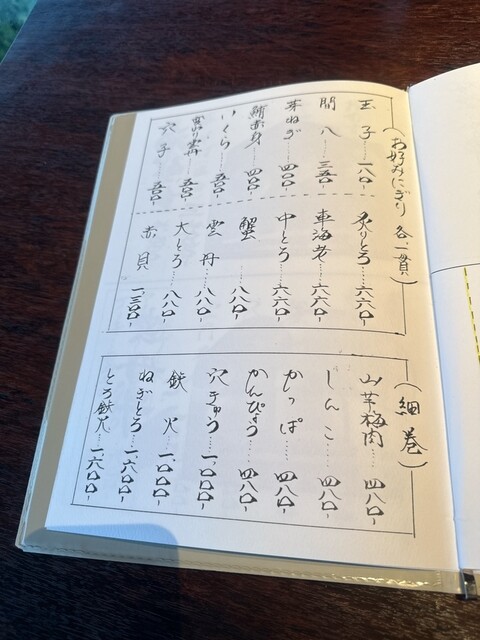 (お好みにぎり 各一貫)
玉子……一八〇-
間八……三五〇-
芽ねぎ……四〇〇-
鮪赤身……四〇〇-
いくら……五〇〇-
雲丹
穴子……五〇〇-
炙りとろ……六六〇-
車海老……六六〇-
中とろ……六六〇-
蟹……八八〇-
雲丹……八八〇-
大とろ……八八〇-
赤貝……一、三〇〇-
(細巻)
山芋梅肉……四八〇-
しんこ……四八〇-
かっぱ……四八〇-
かんぴょう……四八〇-
穴きゅう……一、〇〇〇-
鉄火……一、〇〇〇-
ねぎとろ……一、六〇〇-
とろ鉄火……一、六〇〇-